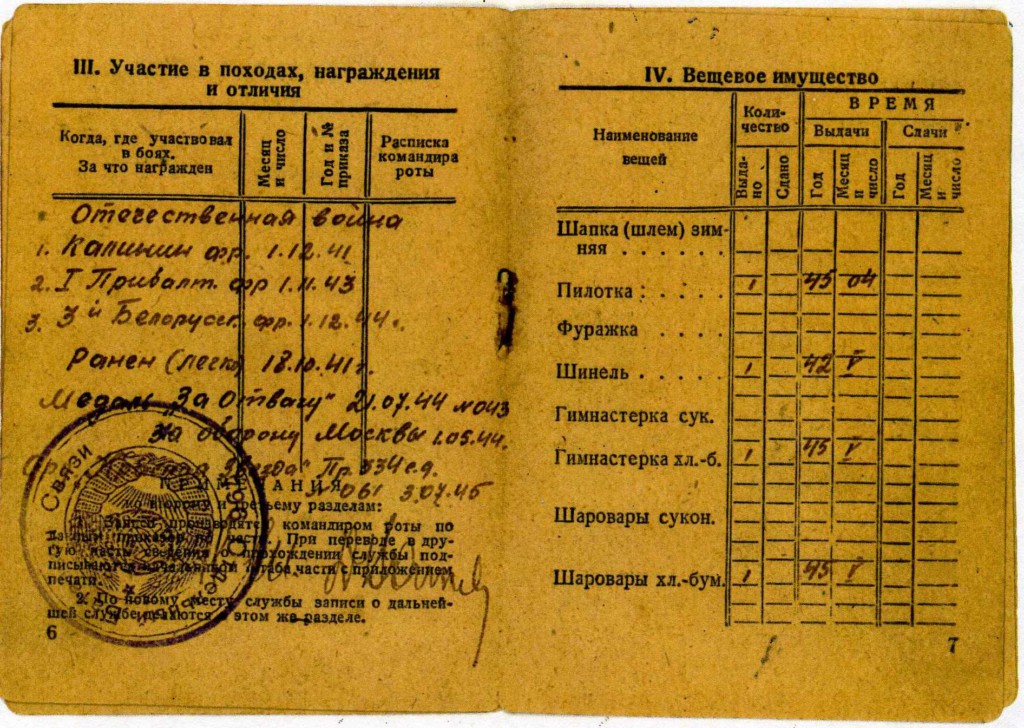 III. Участие в походах, награждения
и отличия
Когда, где участвовал
в боях.
За что награжден
Месяц
и число
Год и №
приказа
Расписка
командира
роты
Отечественная война
1. Калинин фр. 1.12.41
2. I Прибалт. фр 1.11.43
3. 3й Белорусс. фр. 1.12.44г.
Ранен (легко) 18.10.41г.
Медаль „За Отвагу" 21.07.44 №043
За оборону Москвы 1.05.44.
Звезда" Пр. 334 с.д.
№ 061 3.07.45
ПРИМЕЧАНИЯ
ко второму и третьему разделам:
1. Записи производятся командиром роты по
данным приказов по части. При переводе в дру-
гую часть сведения о прохождении службы под-
писываются начальником штаба части с приложением
печати.
2. По новому месту службы записи о дальней-
шей службе делаются в этом же разделе.
Связи
6
IV. Вещевое имущество
Наименование
вещей
Коли-
чество
ВРЕМЯ
Выдачи
Сдачи
Выда-
но
Сдано
Год
Месяц
и
число
Год
Месяц
и
число
Шапка (шлем) зим-
няя . . . . . .
Пилотка : . . . . 1 45 04
Фуражка . . . .
Шинель . . . . . 1 42 V
Гимнастерка сук.
Гимнастерка хл.-б. 1 45 V
Шаровары сукон.
Шаровары хл.-бум. 1 45 V
7